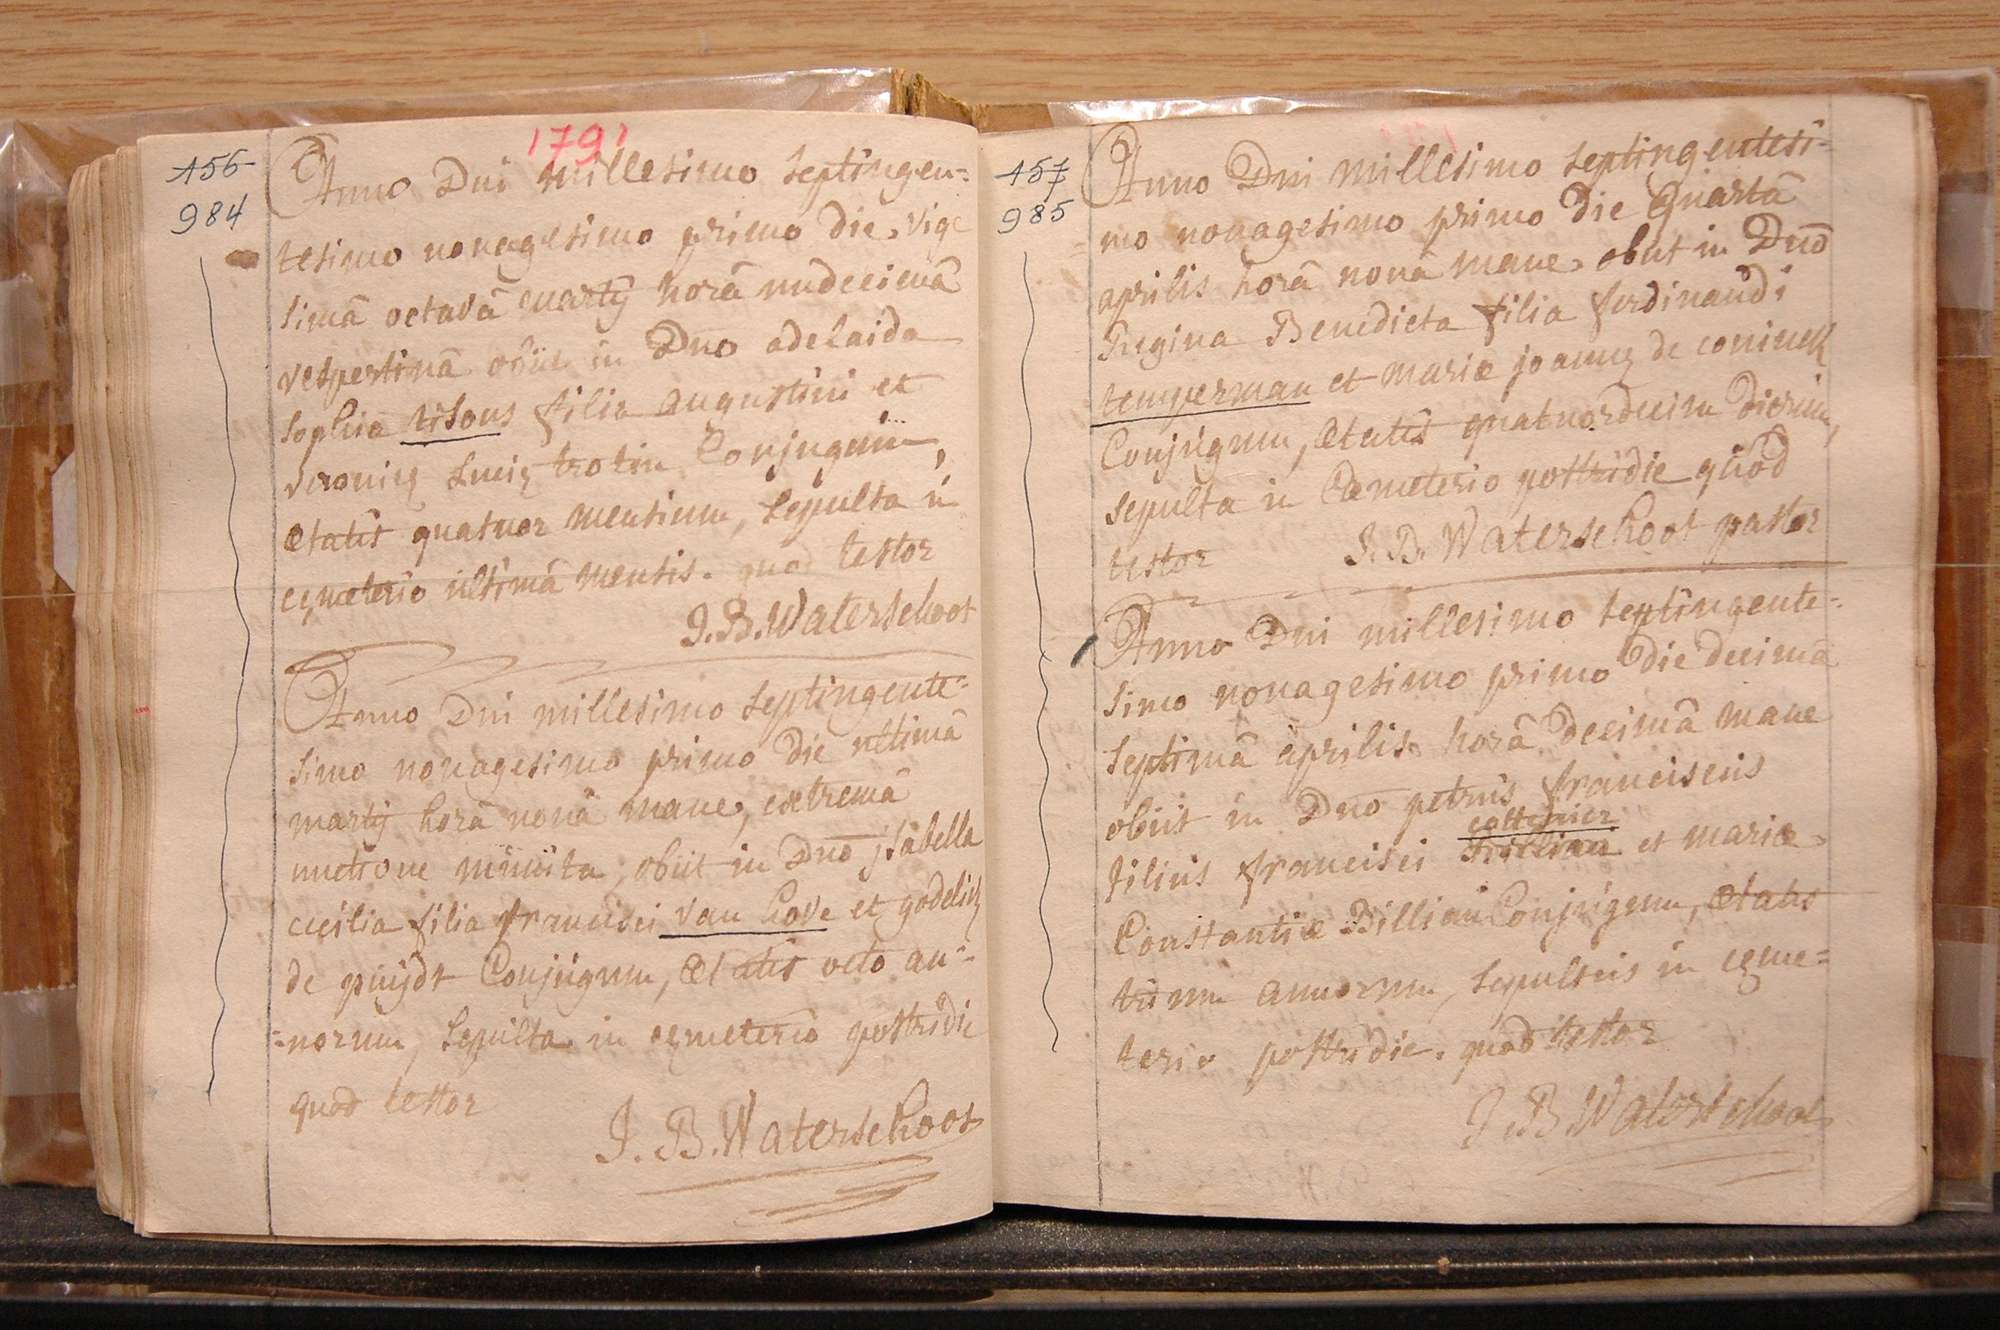 1791
156
984
Anno Dni millesimo septingen=
tesimo nonagesimo primo die vige
simâ octavâ martÿ horâ undecimâ
vespertinâ obiit in Dno adelaida
sophia tisons filia augustini et
veronicę Lucię trotin Conjugum,
Ætatis quatuor mensium, sepulta in
cęmeterio ultimâ mensis. quod testor
J.B.Waterschoot
Anno Dni millesimo septingente=
simo nonagesimo primo die ultimâ
martÿ horâ nonâ mane, extremâ
unctione munita, obiit in Dnō jsabella
cecilia filia francisci van hove et godelię
de puijdt Conjugum, Ætatis octo an=
=norum, sepulta in cęmeterio postridie
quod testor
J. B. Waterschoot
157
985
Anno Dni millesimo septingentesi=
mo nonagesimo primo die quartâ
aprilis horâ nonâ mane obiit in Dnō
Regina Benedicta filia ferdinandi
temperman et mariæ joannę de coninck
Conjugum, Ætatis quatuordecim dierum,
sepulta in Cæmeterio postridie quod
testor J. B. Waterschoot pastor
Anno Dni millesimo septingente=
simo nonagesimo primo die decimâ
septimâ aprilis horâ decimâ mane
obiit in Dnō petrus franciscus
cottenier
filius francisci et mariæ
Constantiæ Billiau Conjugum, Ætatis
trium annorum, sepultus in cęme=
terio postridie. quod testor
J. B. Waterschoot